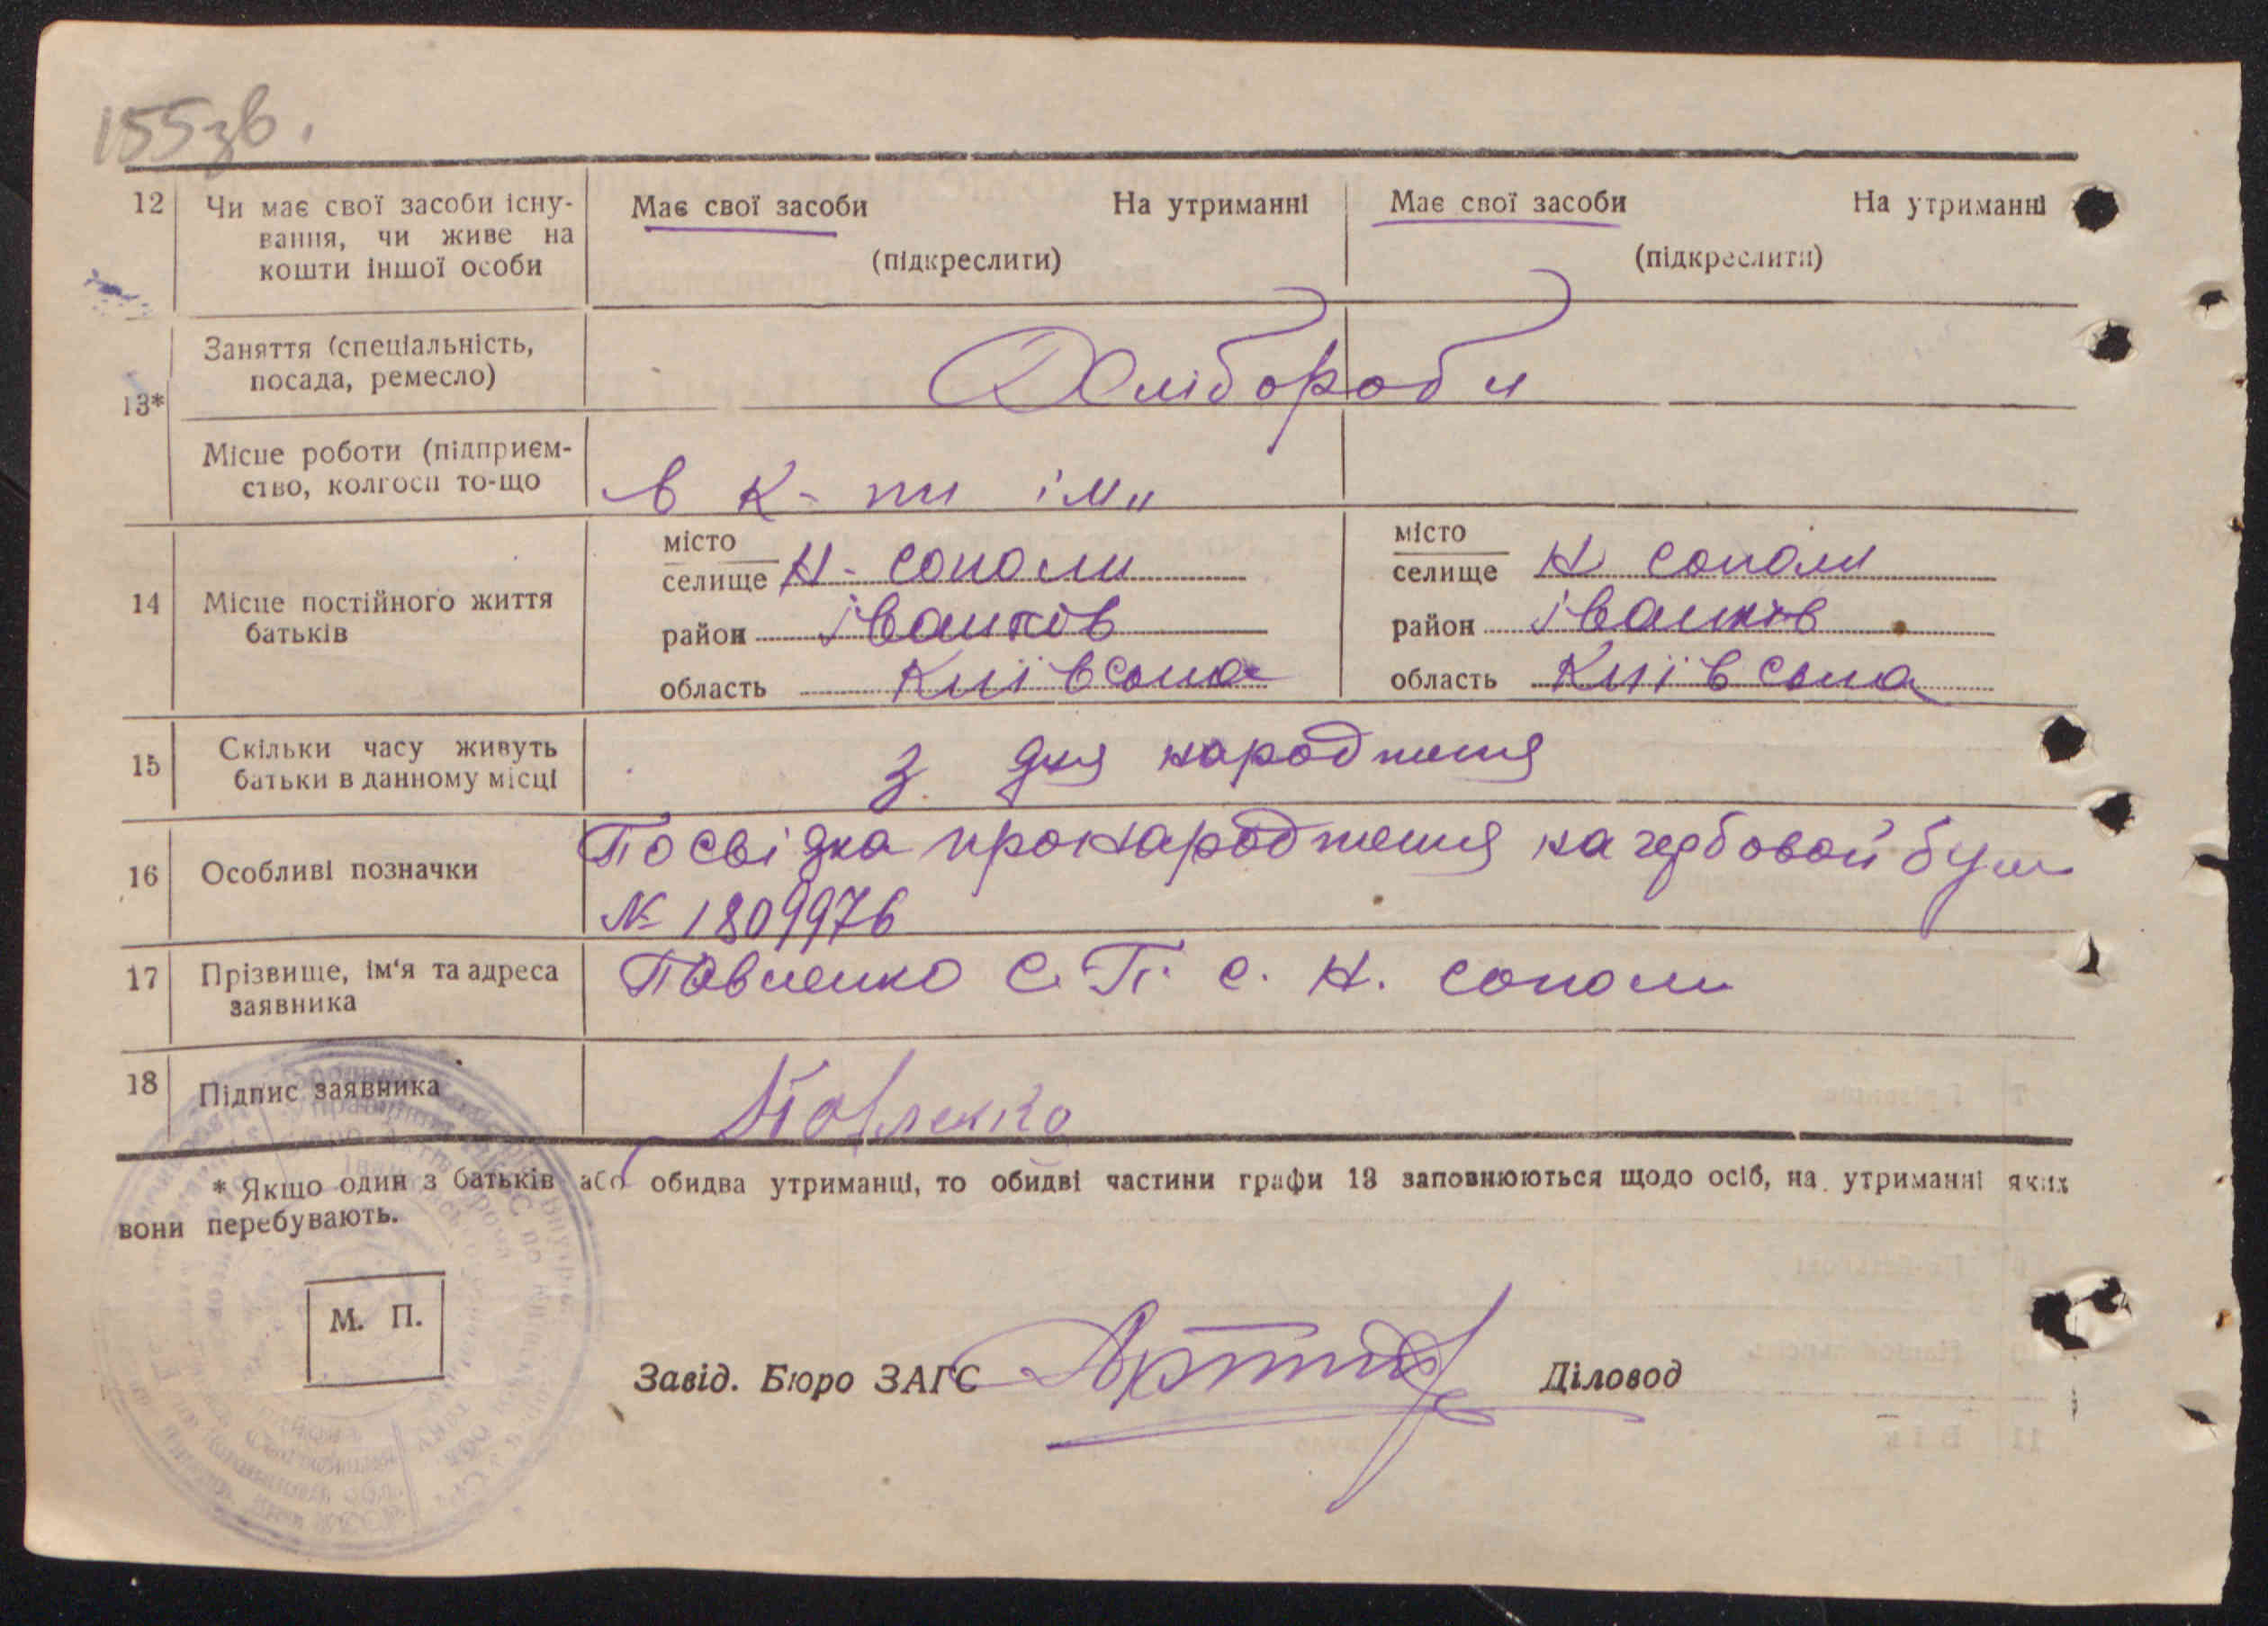 155зв.
12 Чи має свої засоби існу-
вання, чи живе на
кошти іншої особи
Має свої засоби На утриманні
(підкреслити)
Має свої засоби На утриманні
(підкреслити)
13*
Заняття (спеціальність,
посада, ремесло)
Хлібороби
Місце роботи (підприєм-
ство, колгосп то-що
в к-пи ім"
14 Місце постійного життя
батьків
місто
селище Н-соколи
район іванків
область Київська
місто
селище Н соколи
район іванків
область Київська
15 Скільки часу живуть
батьки в данному місці
з дня народження
16 Особливі позначки
Посвідка пронародження на гербовой бум
№ 1809976
17 Прізвище, ім'я та адреса
заявника
Павленко С. П. с. Н. соколи
18 Підпис заявника
Павленко
* Якщо один з батьків або обидва утриманці, то обидві частини графи 13 заповнюються щодо осіб, на утриманні яких
вони перебувають.
М. П.
Завід. Бюро ЗАГС Діловод